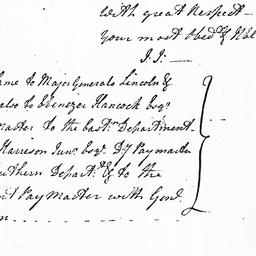 with great Respect -
Your most Obedt. & Hbl
J.J: -
ame to Major Generals Lincoln &
also to Ebenezer Hancock Esqr.
aster to the eastrn. Department
Harrison Junr. Esqr. Dy Paymaster
uthern Departt. & to the
nt Pay Master with Genl.
n